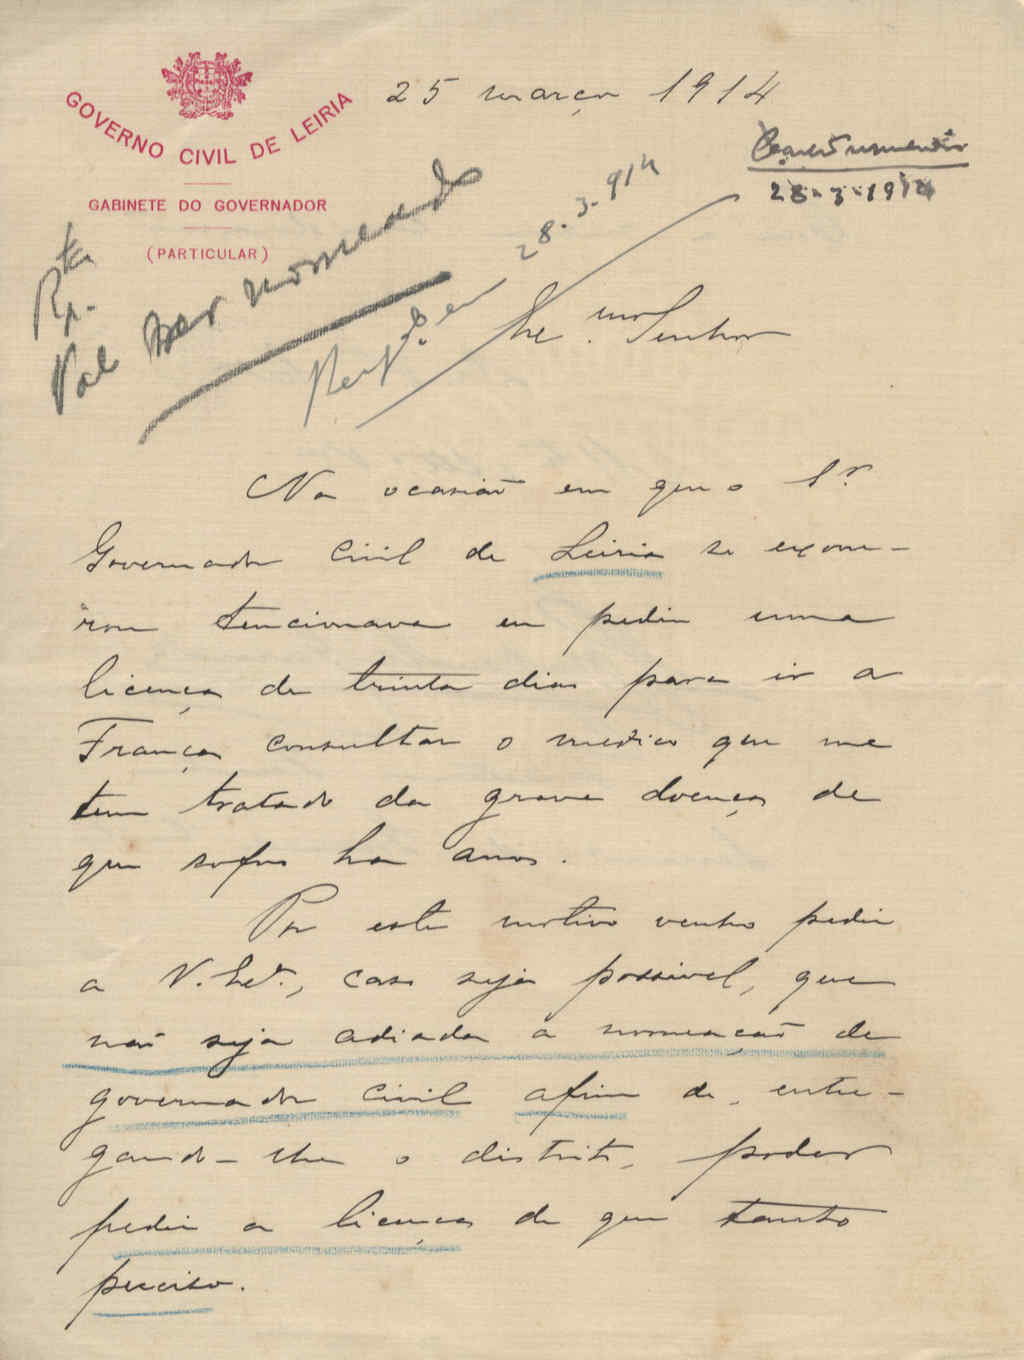 GOVERNO CIVIL DE LEIRIA
GABINETE DO GOVERNADOR
(PARTICULAR)
25 março 1914
28-3-1914
Rp.ta
Vae ser nomeado
28.3.914
Ex.mo Senhor
Na ocasião em que o S.r
Governador Civil de Leiria se exone-
rou tencionava eu pedir uma
licença de trinta dias para ir a
França consultar o medico que me
tem tratado da grave doença de
que sofro ha anos.
Por este motivo venho pedir
a V. Ex.a, caso seja possivel, que
não seja adiada a nomeação de
governador civil afim de, entre-
gando-lhe o distrito, poder
pedir a licença de que tanto
preciso.